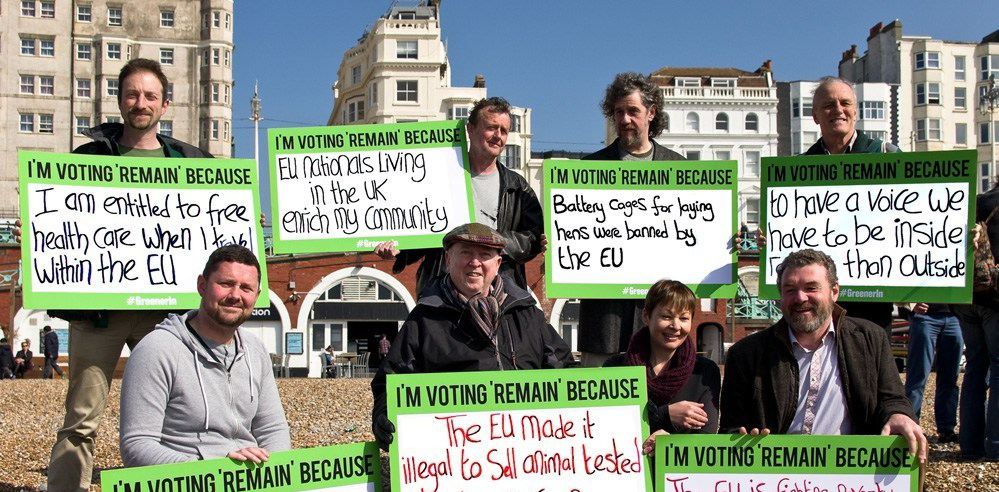 I'M VOTING 'REMAIN' BECAUSE
I am entitled to free
health care when I travel
within the EU
#GreenerIn
I'M VOTING 'REMAIN' BECAUSE
EU nationals living
in the UK
enrich my community
#GreenerIn
I'M VOTING 'REMAIN' BECAUSE
Battery cages for laying
hens were banned by
the EU
I'M VOTING 'REMAIN' BECAUSE
to have a voice we
have to be inside
than outside
#GreenerIn
I'M VOTING 'REMAIN' BECAUSE
I'M VOTING 'REMAIN' BECAUSE
The EU made it
illegal to sell animal tested
I'M VOTING 'REMAIN' BECAUSE
The EU is fighting